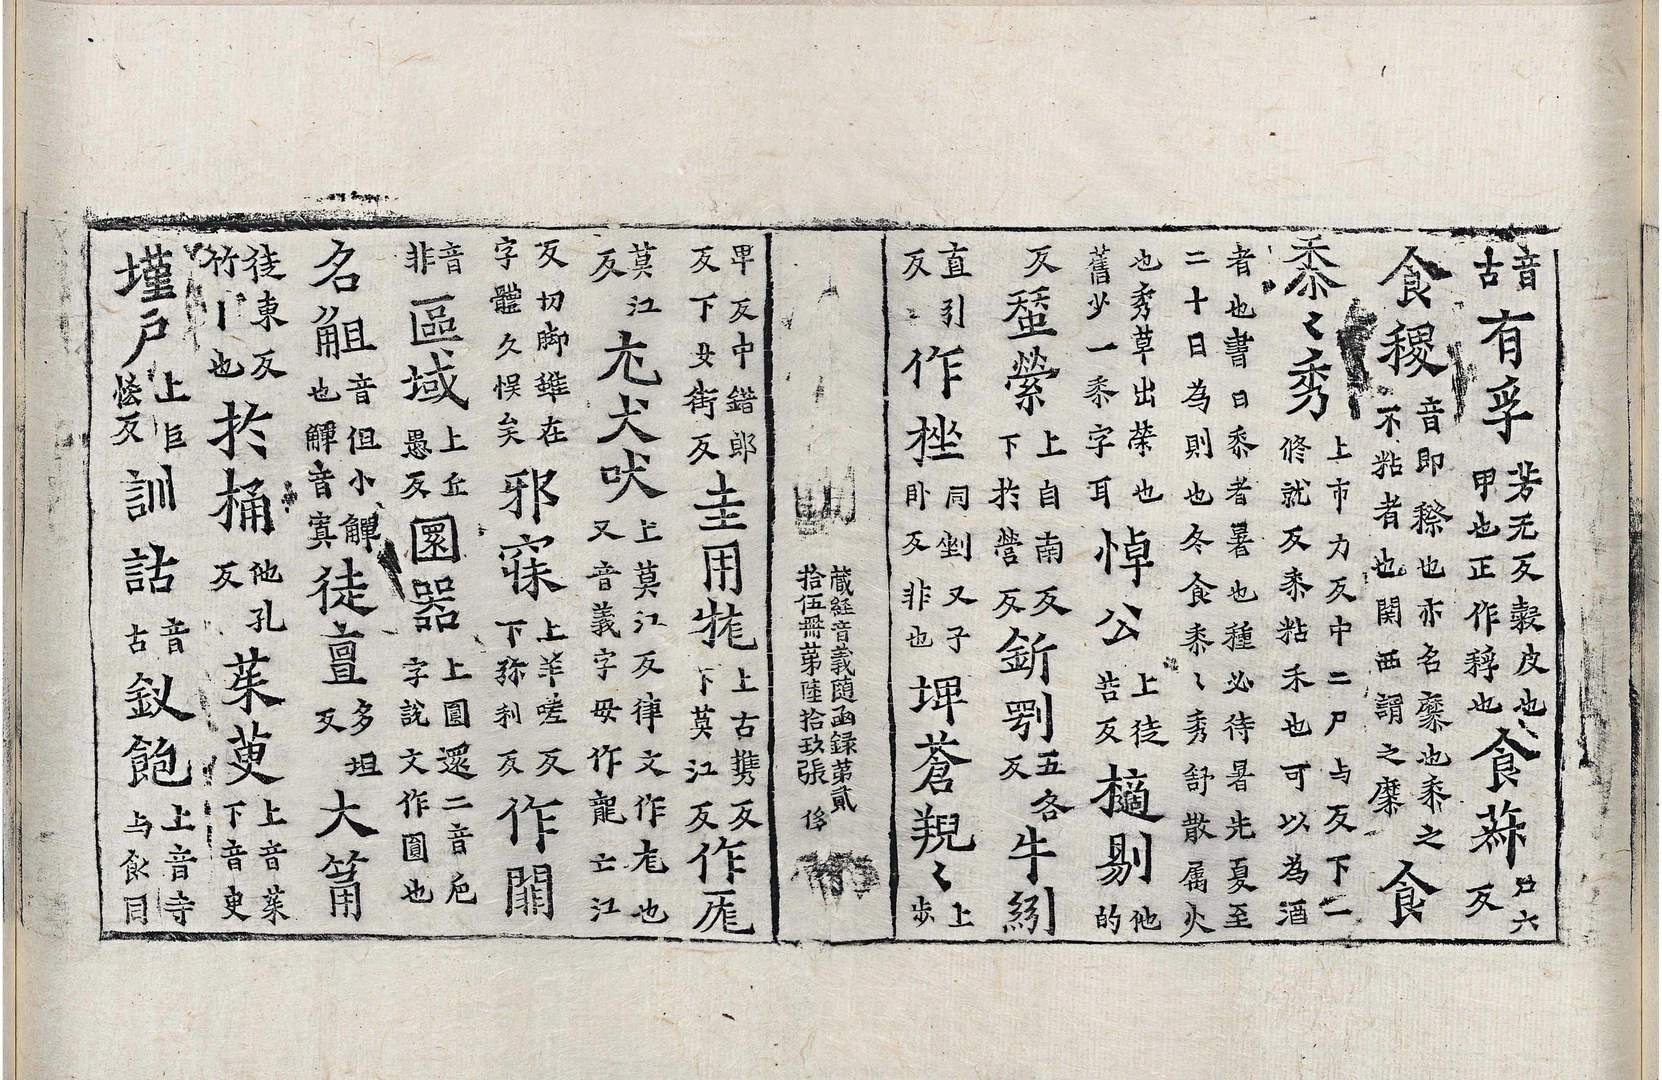 音古有孚芳无反穀皮也甲也正作稃也食䔬尸六反
食稷音即穄也亦名穈也黍之不粘者也関西謂之穈食
黍〻秀上市力反中二尸与反下二修就反黍粘禾也可以為酒
者也書曰黍者暑也種必待暑先夏至二十日為則也冬食黍〻秀舒散属火
也秀草出荣也舊少一黍字耳悼公上徒告反擿剔上他的
反蝅縈上自南反下於營反釿㓵五各反牛紖
直引反作挫同剉又子卧反非也埤蒼〻上步
藏経音義随函録第貳拾伍冊第陸拾玖張 侈
卑反中錯郎反下女街反圭用牻上古携反下莫江反作厖
莫江反尨犬吠上莫江反律文作尨也又音義字毋作龍亡江
反切脚雖在字體久悮矣邪寐上羊嗟反下弥利反作關
音非區域上丘愚反圂器上圓還二音巵字說文作圓也
名觛音但小觶也觶音寘徒亶多坦反大筩
徒東反竹丨也於桶他孔反茱萸上音茱下音吏
墐戶上巨恡反訓詁音古釵飽上音寺与飤同